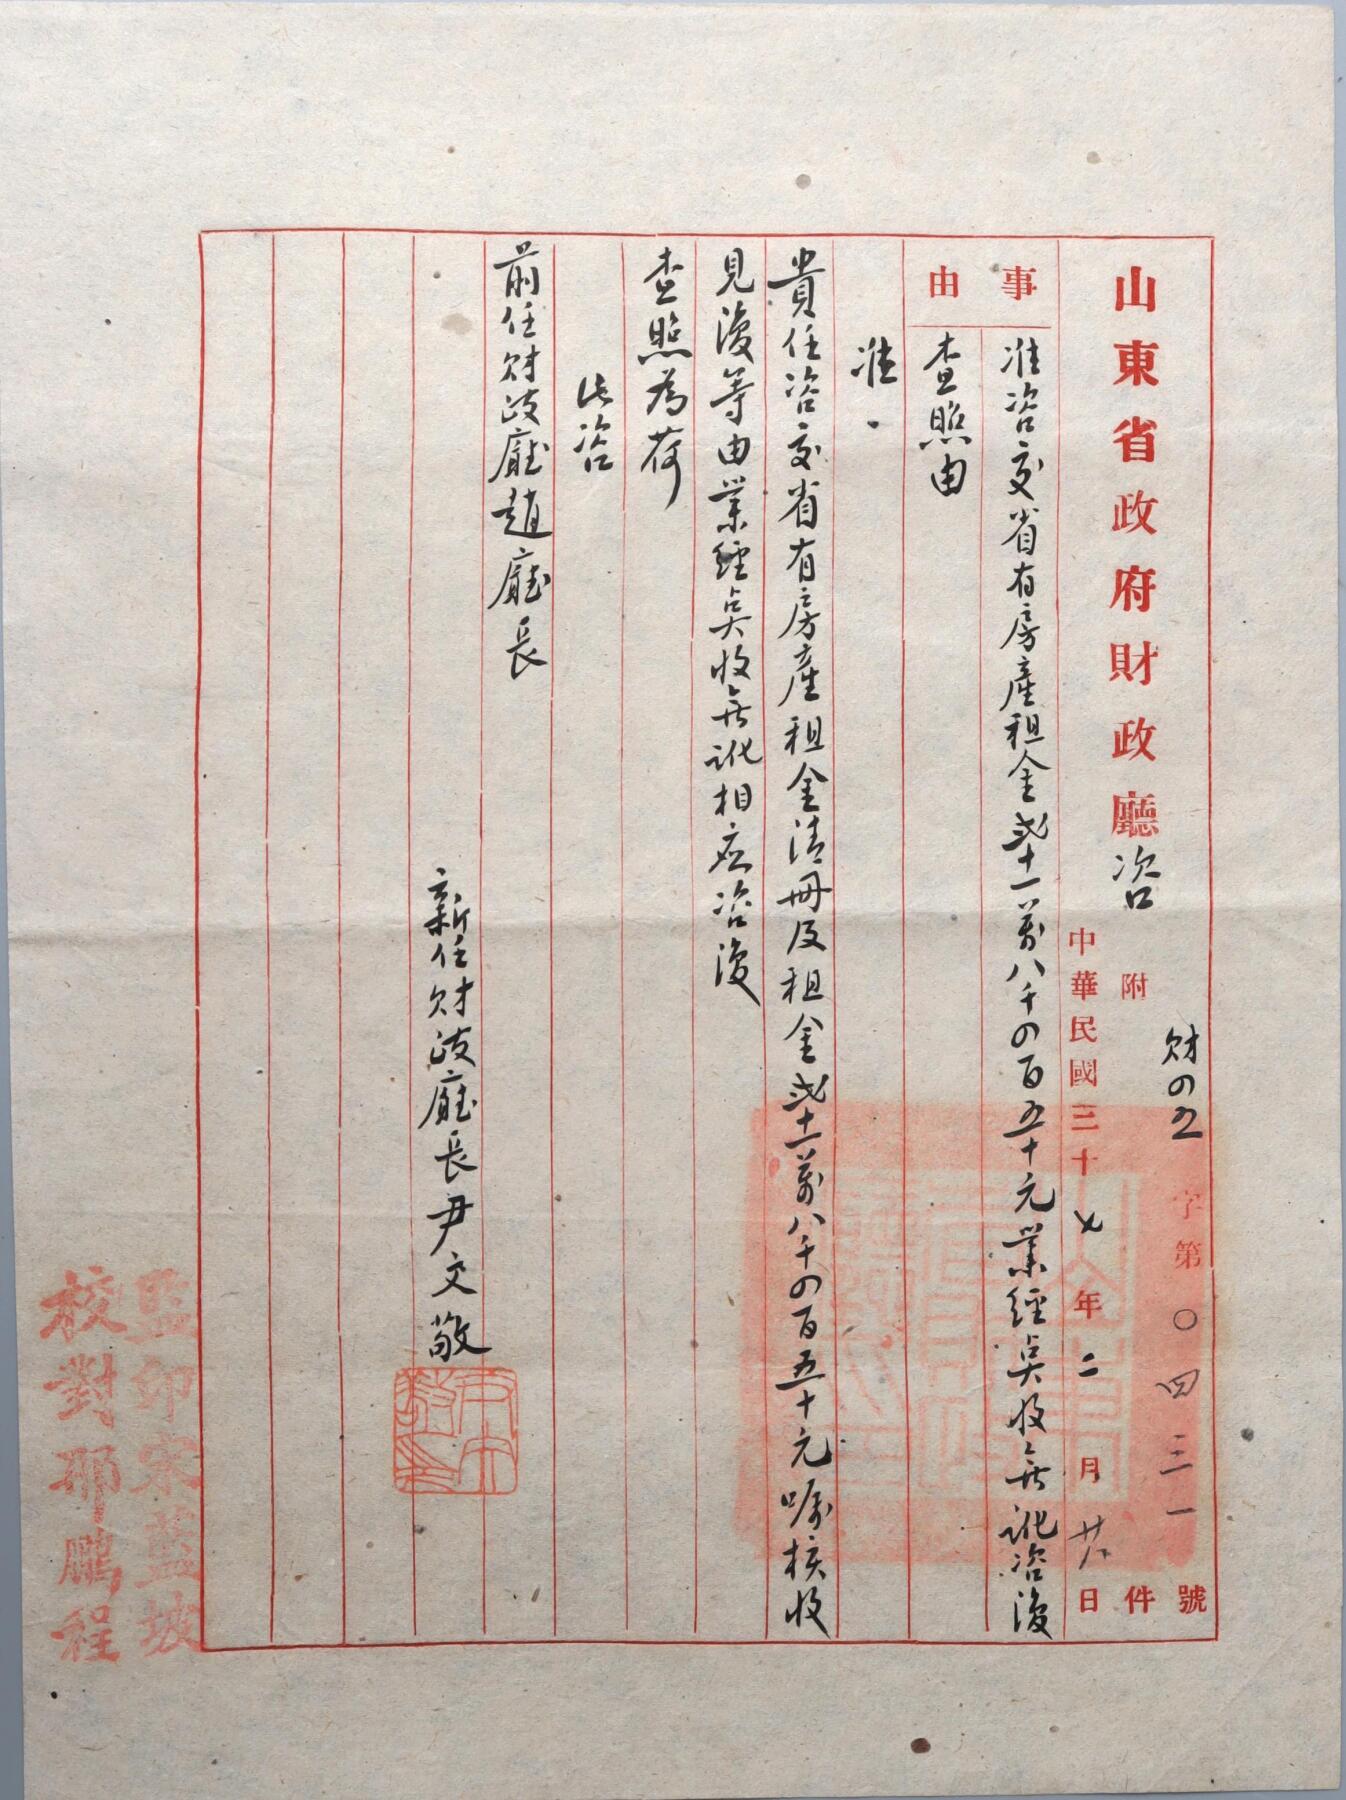 山東省政府財政廳咨
財四五字第〇四三一號
附 件
中華民國三十七年二月廿八日
事由
准咨交省有房產租金貳十一萬八千四百五十元業經點收無訛咨復
查照由
准
貴任咨交省有房產租金清冊及租金貳十一萬八千四百五十元囑核收
見復等由業經點收無訛相應咨復
查照為荷
此咨
前任財政廳趙廳長
新任財政廳長尹文敬
監印宋藍坡
校對邢鵬程